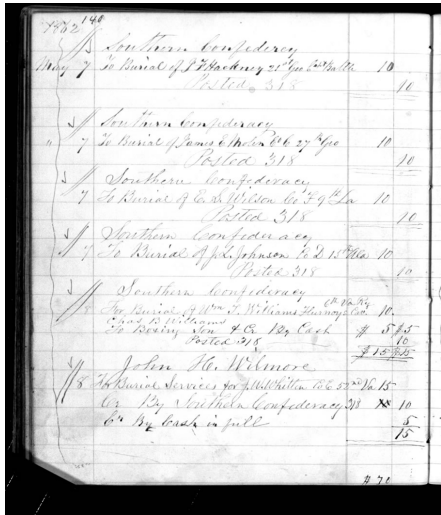 1862 140
Southern Confedercy
May 7 To Burial of J T Hackney 21st Geo 10
Posted 318 10
Southern Confederacy
" 7 To Burial of James E Co C 27th Geo 10
Posted 318 10
Southern Confederacy
7 To Burial of E. S. Wilson Co F 9th La 10
Posted 318 10
Southern Confederacy
7 To Burial of J. L. Johnson Co D 15th Ala 10
Posted 318 10
Southern Confederacy
8 For Burial of Wm T. Williams 10.
Chas B Williams
To Boxing Son & Cr By Cash $ 5 $ 5
Posted 318 10
$ 15 $ 15
John H. Wilmore
8 For Burial Services for J W Whitten Co C 52nd Va 15
Cr By Southern Confederacy 318 10
Cr By Cash in full 5
15